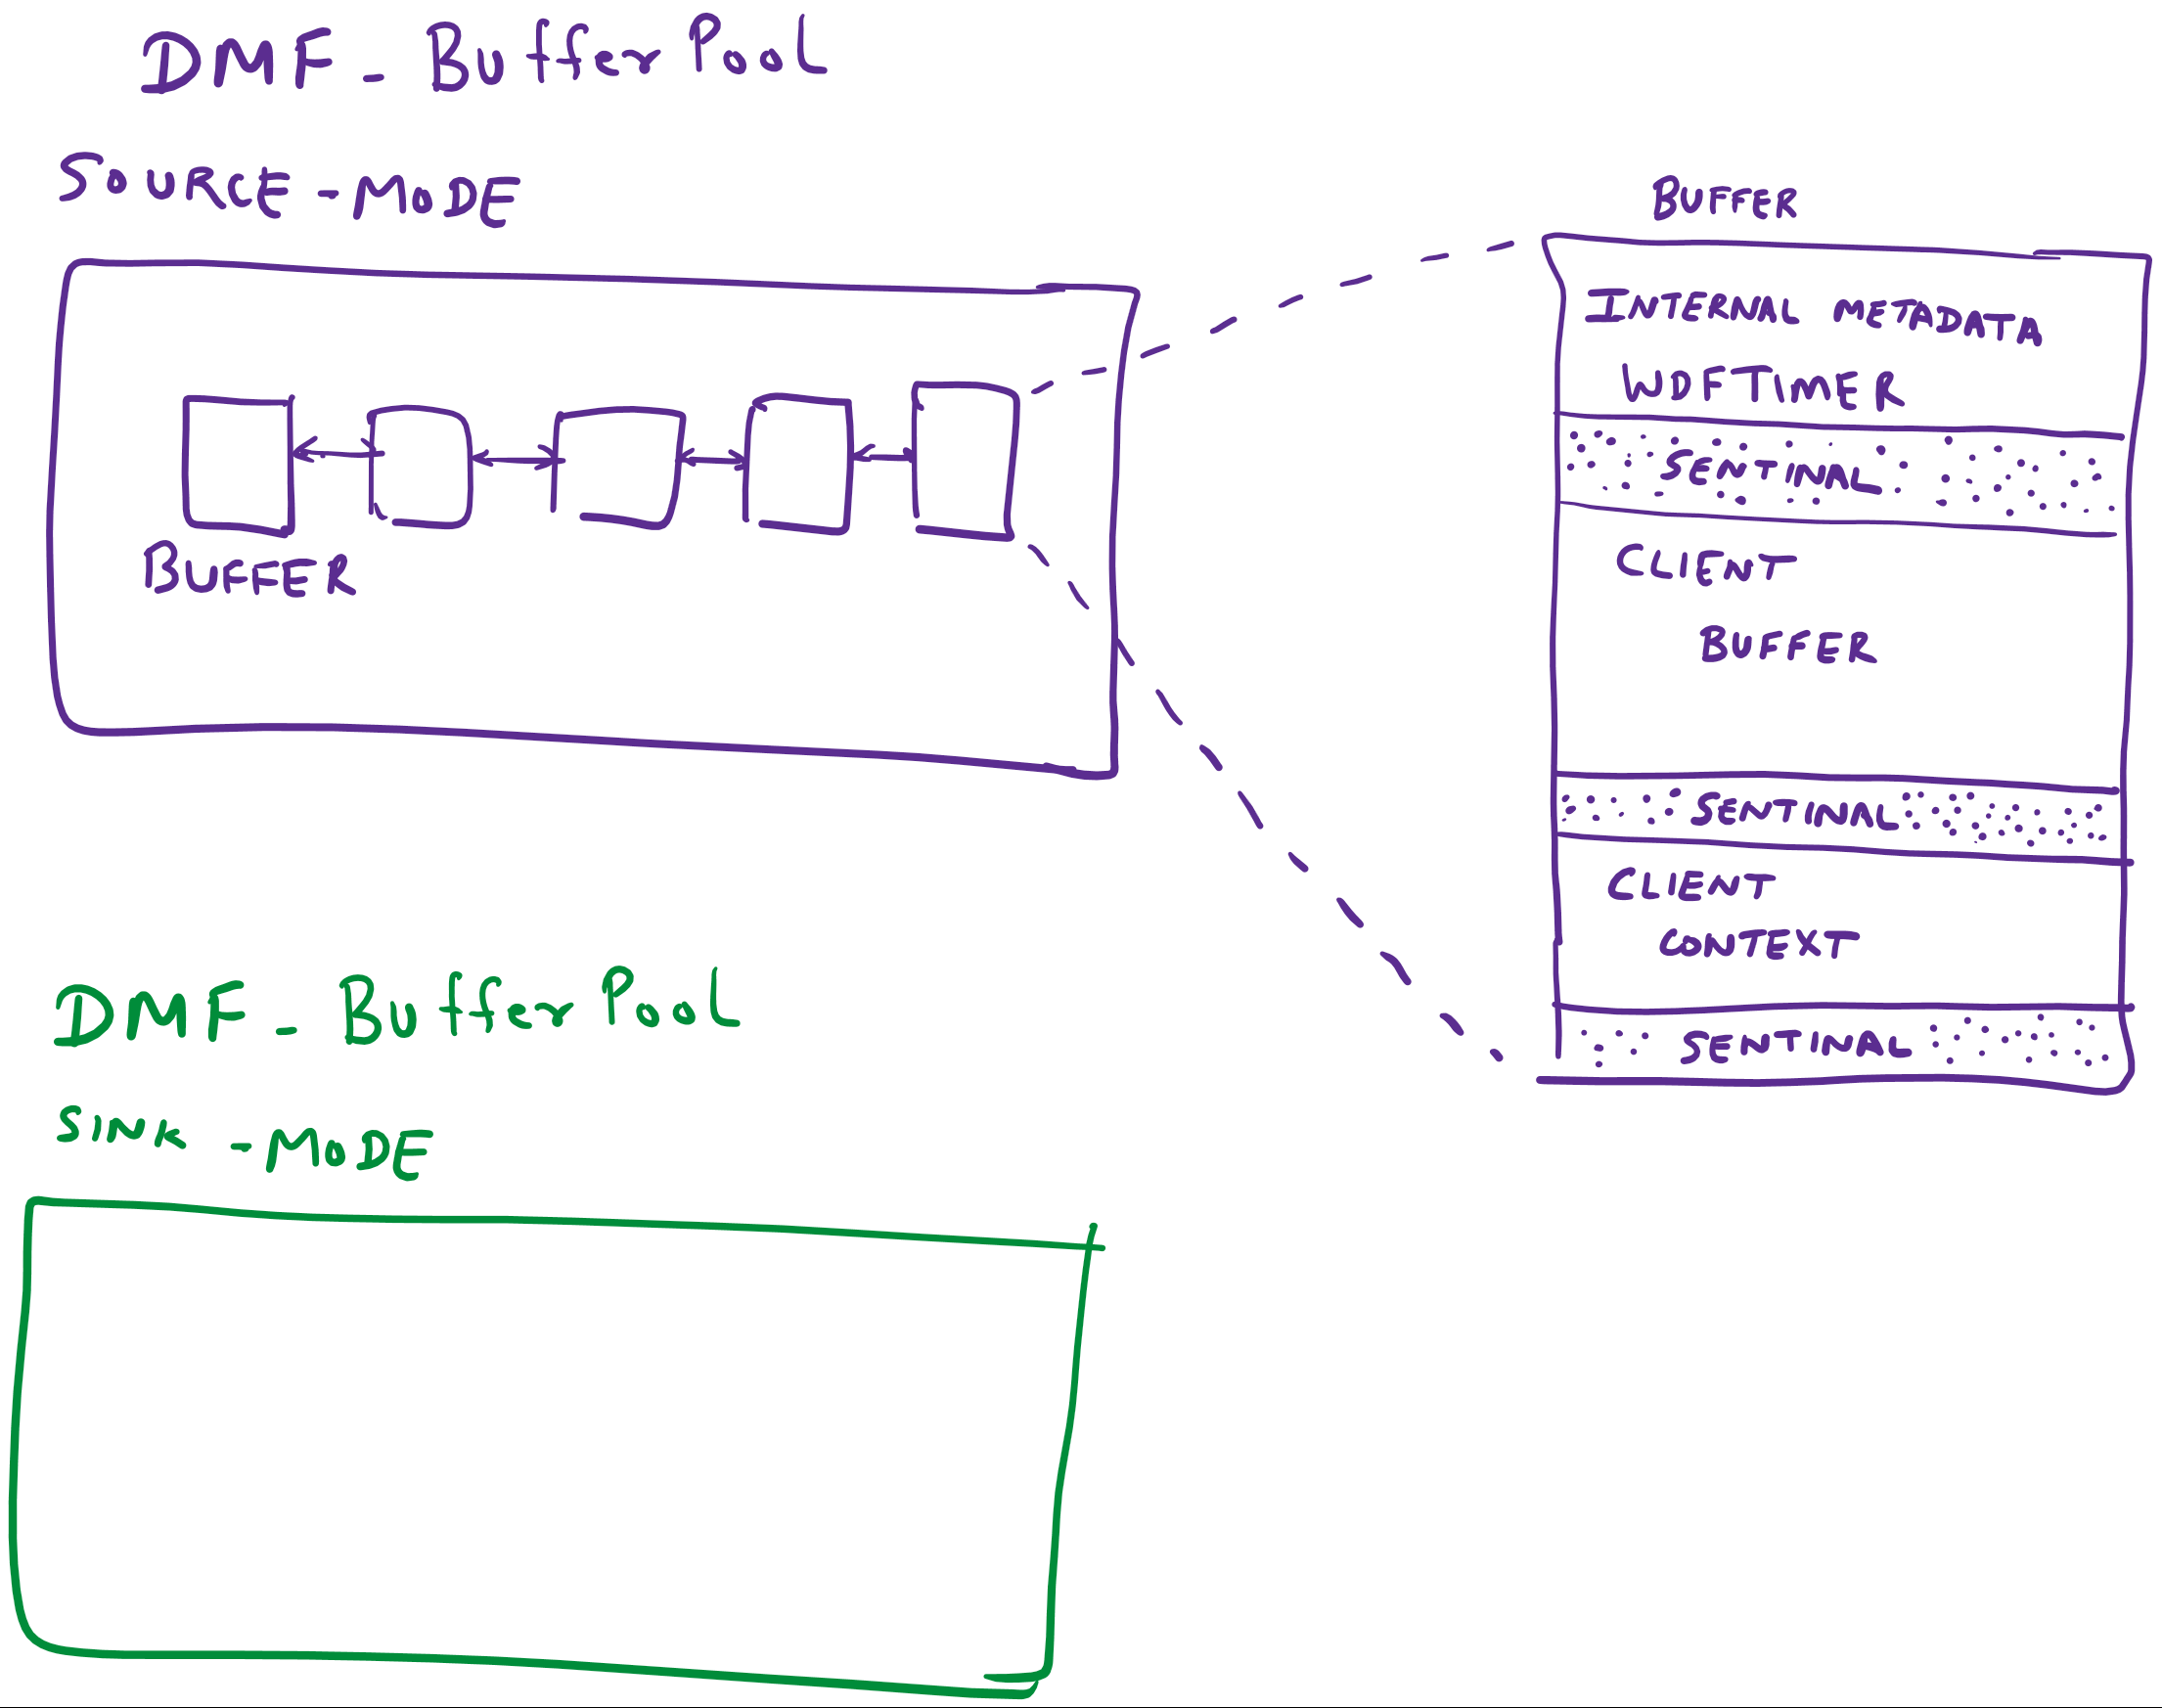 DMF_BufferPool
SOURCE-MODE
BUFFER
BUFFER
INTERNAL METADATA
WDFTIMER
SENTINAL
CLIENT
BUFFER
SENTINAL
CLIENT
CONTEXT
SENTINAL
DMF_BufferPool
SINK-MODE